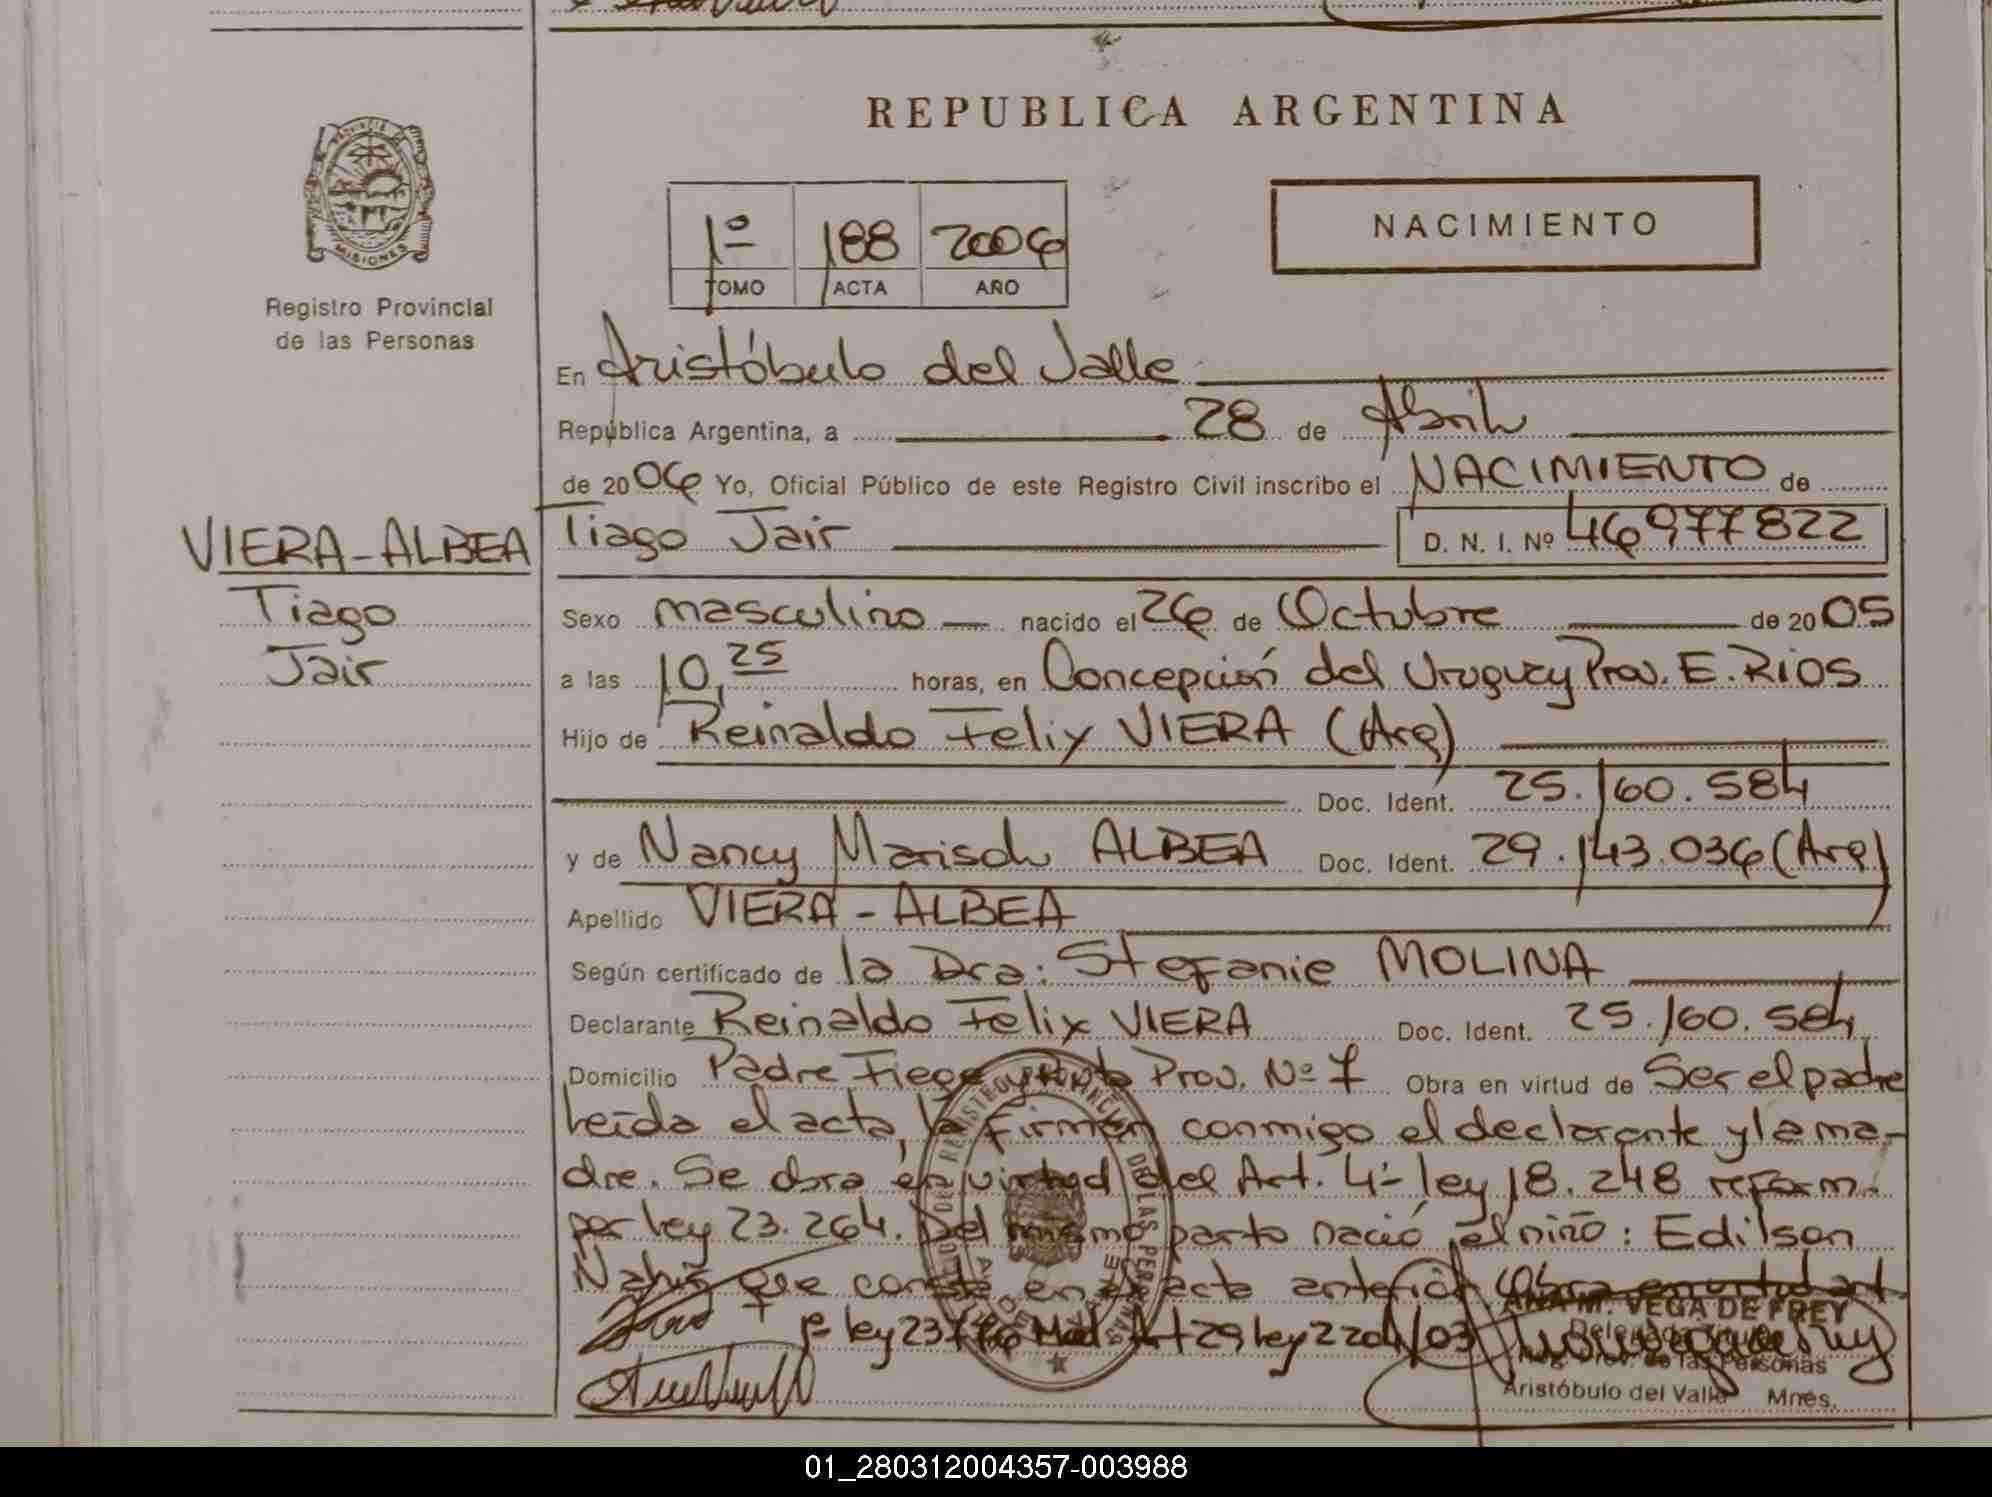 REPUBLICA ARGENTINA
PROVINCIA DE
MISIONES
Registro Provincial
de las Personas
1º 188 2006
TOMO ACTA AÑO
NACIMIENTO
En Aristóbulo del Valle
República Argentina, a 28 de Abril
de 2006 Yo, Oficial Público de este Registro Civil inscribo el NACIMIENTO de
VIERA-ALBEA
Tiago
Jair
Tiago Jair D. N. I. Nº 46977822
Sexo masculino nacido el 26 de Octubre de 2005
a las 10,25 horas, en Concepción del Uruguay Prov. E. RIOS
Hijo de Reinaldo Felix VIERA (Arg)
Doc. Ident. 25.160.584
y de Nancy Marisol ALBEA Doc. Ident. 29.143.036 (Arg)
Apellido VIERA - ALBEA
Según certificado de la Dra: Stefanie MOLINA
Declarante Reinaldo Felix VIERA Doc. Ident. 25.160.584
Domicilio Padre Fiege y Ruta Prov. Nº 7 Obra en virtud de Ser el padre
Leída el acta, la firman conmigo el declarante y la ma-
dre. Se obra en virtud del Art. 4º ley 18.248 reform.
por ley 23.264. Del mismo parto nació el niño: Edilson
que consta en el acta anterior Obra en virtud art
1º ley Mod. Art 29 ley
ANA M. VEGA DE FREY
Delegada Titular
Reg. Prov. de las Personas
Aristóbulo del Valle Mnes.
01_280312004357-003988